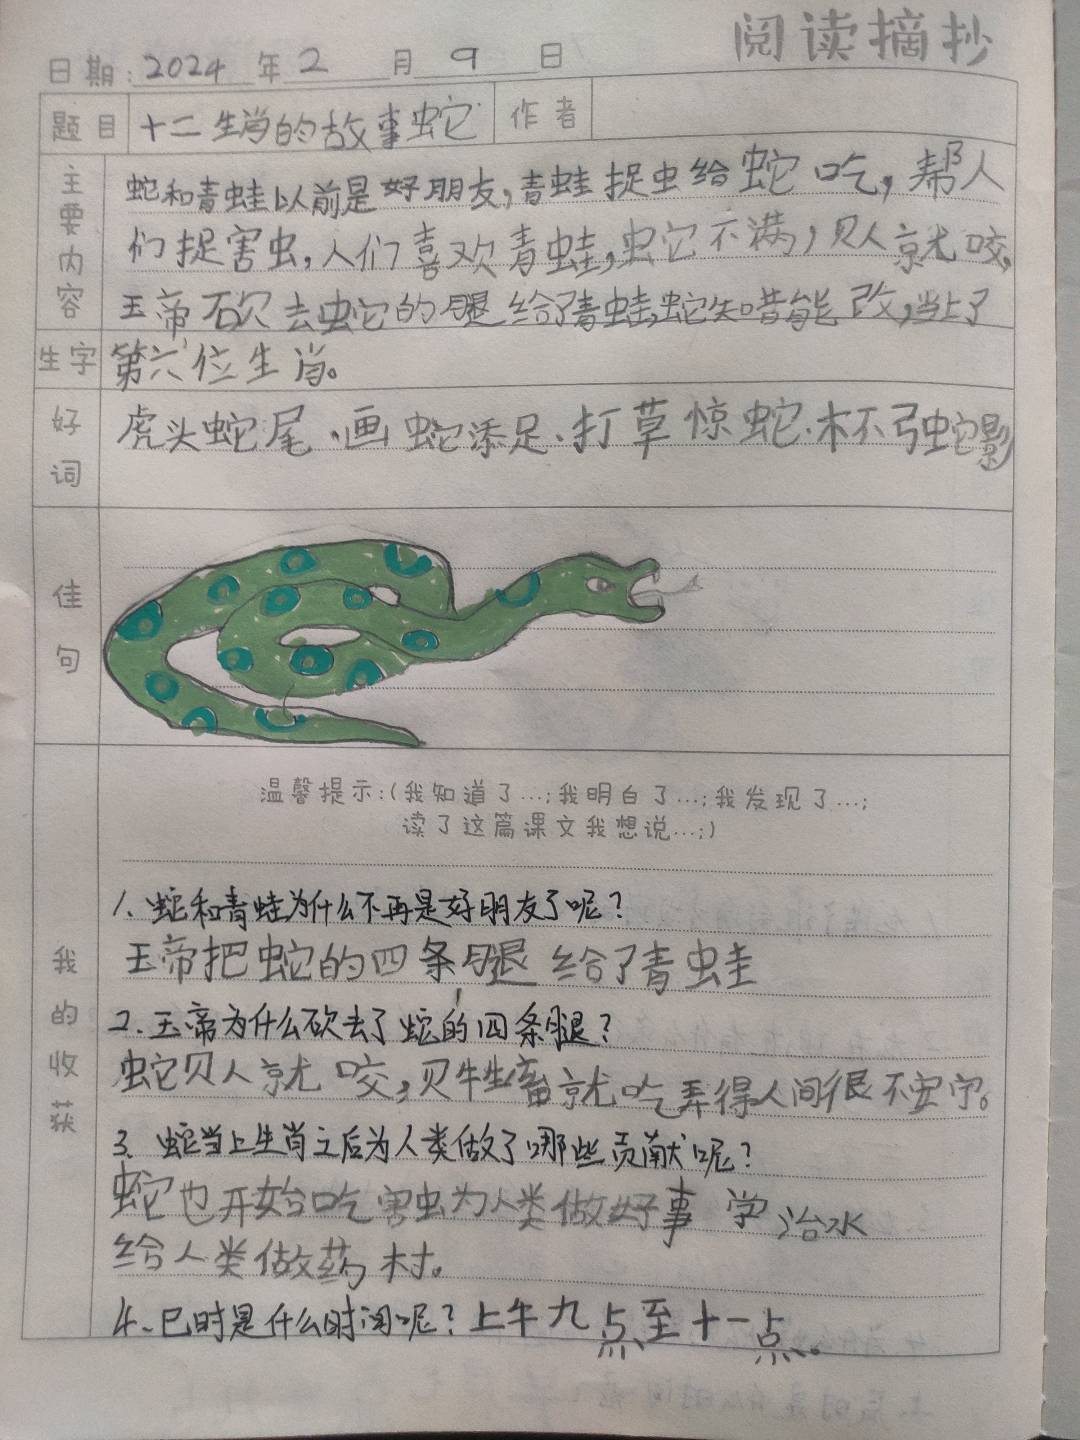 阅读摘抄
日期:2024年2月9日
题目 十二生肖的故事蛇 作者
主要内容
蛇和青蛙以前是好朋友,青蛙捉虫给蛇吃,帮人
们捉害虫,人们喜欢青蛙,蛇不满,见人就咬,
玉帝砍去蛇的腿给了青蛙,蛇知错能改,当上了
生字 第六位生肖。
好词
虎头蛇尾、画蛇添足、打草惊蛇、杯弓蛇影
佳句
温馨提示:(我知道了…;我明白了…;我发现了…;
读了这篇课文我想说…;)
我的收获
1、蛇和青蛙为什么不再是好朋友了呢?
玉帝把蛇的四条腿给了青蛙
2、玉帝为什么砍去了蛇的四条腿?
蛇见人就咬,见牲畜就吃弄得人间很不安宁。
3、蛇当上生肖之后为人类做了哪些贡献呢?
蛇也开始吃害虫为人类做好事 学治水
给人类做药材。
4、巳时是什么时间呢?上午九点至十一点。